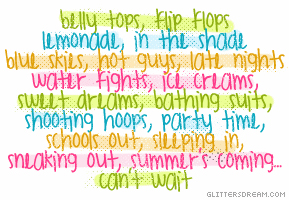 belly tops, flip flops
lemonade, in the shade
blue skies, hot guys, late nights
water fights, ice creams,
sweet dreams, bathing suits,
shooting hoops, party time,
schools out, sleeping in,
sneaking out, summer's coming...
can't wait
GLITTERSDREAM.COM